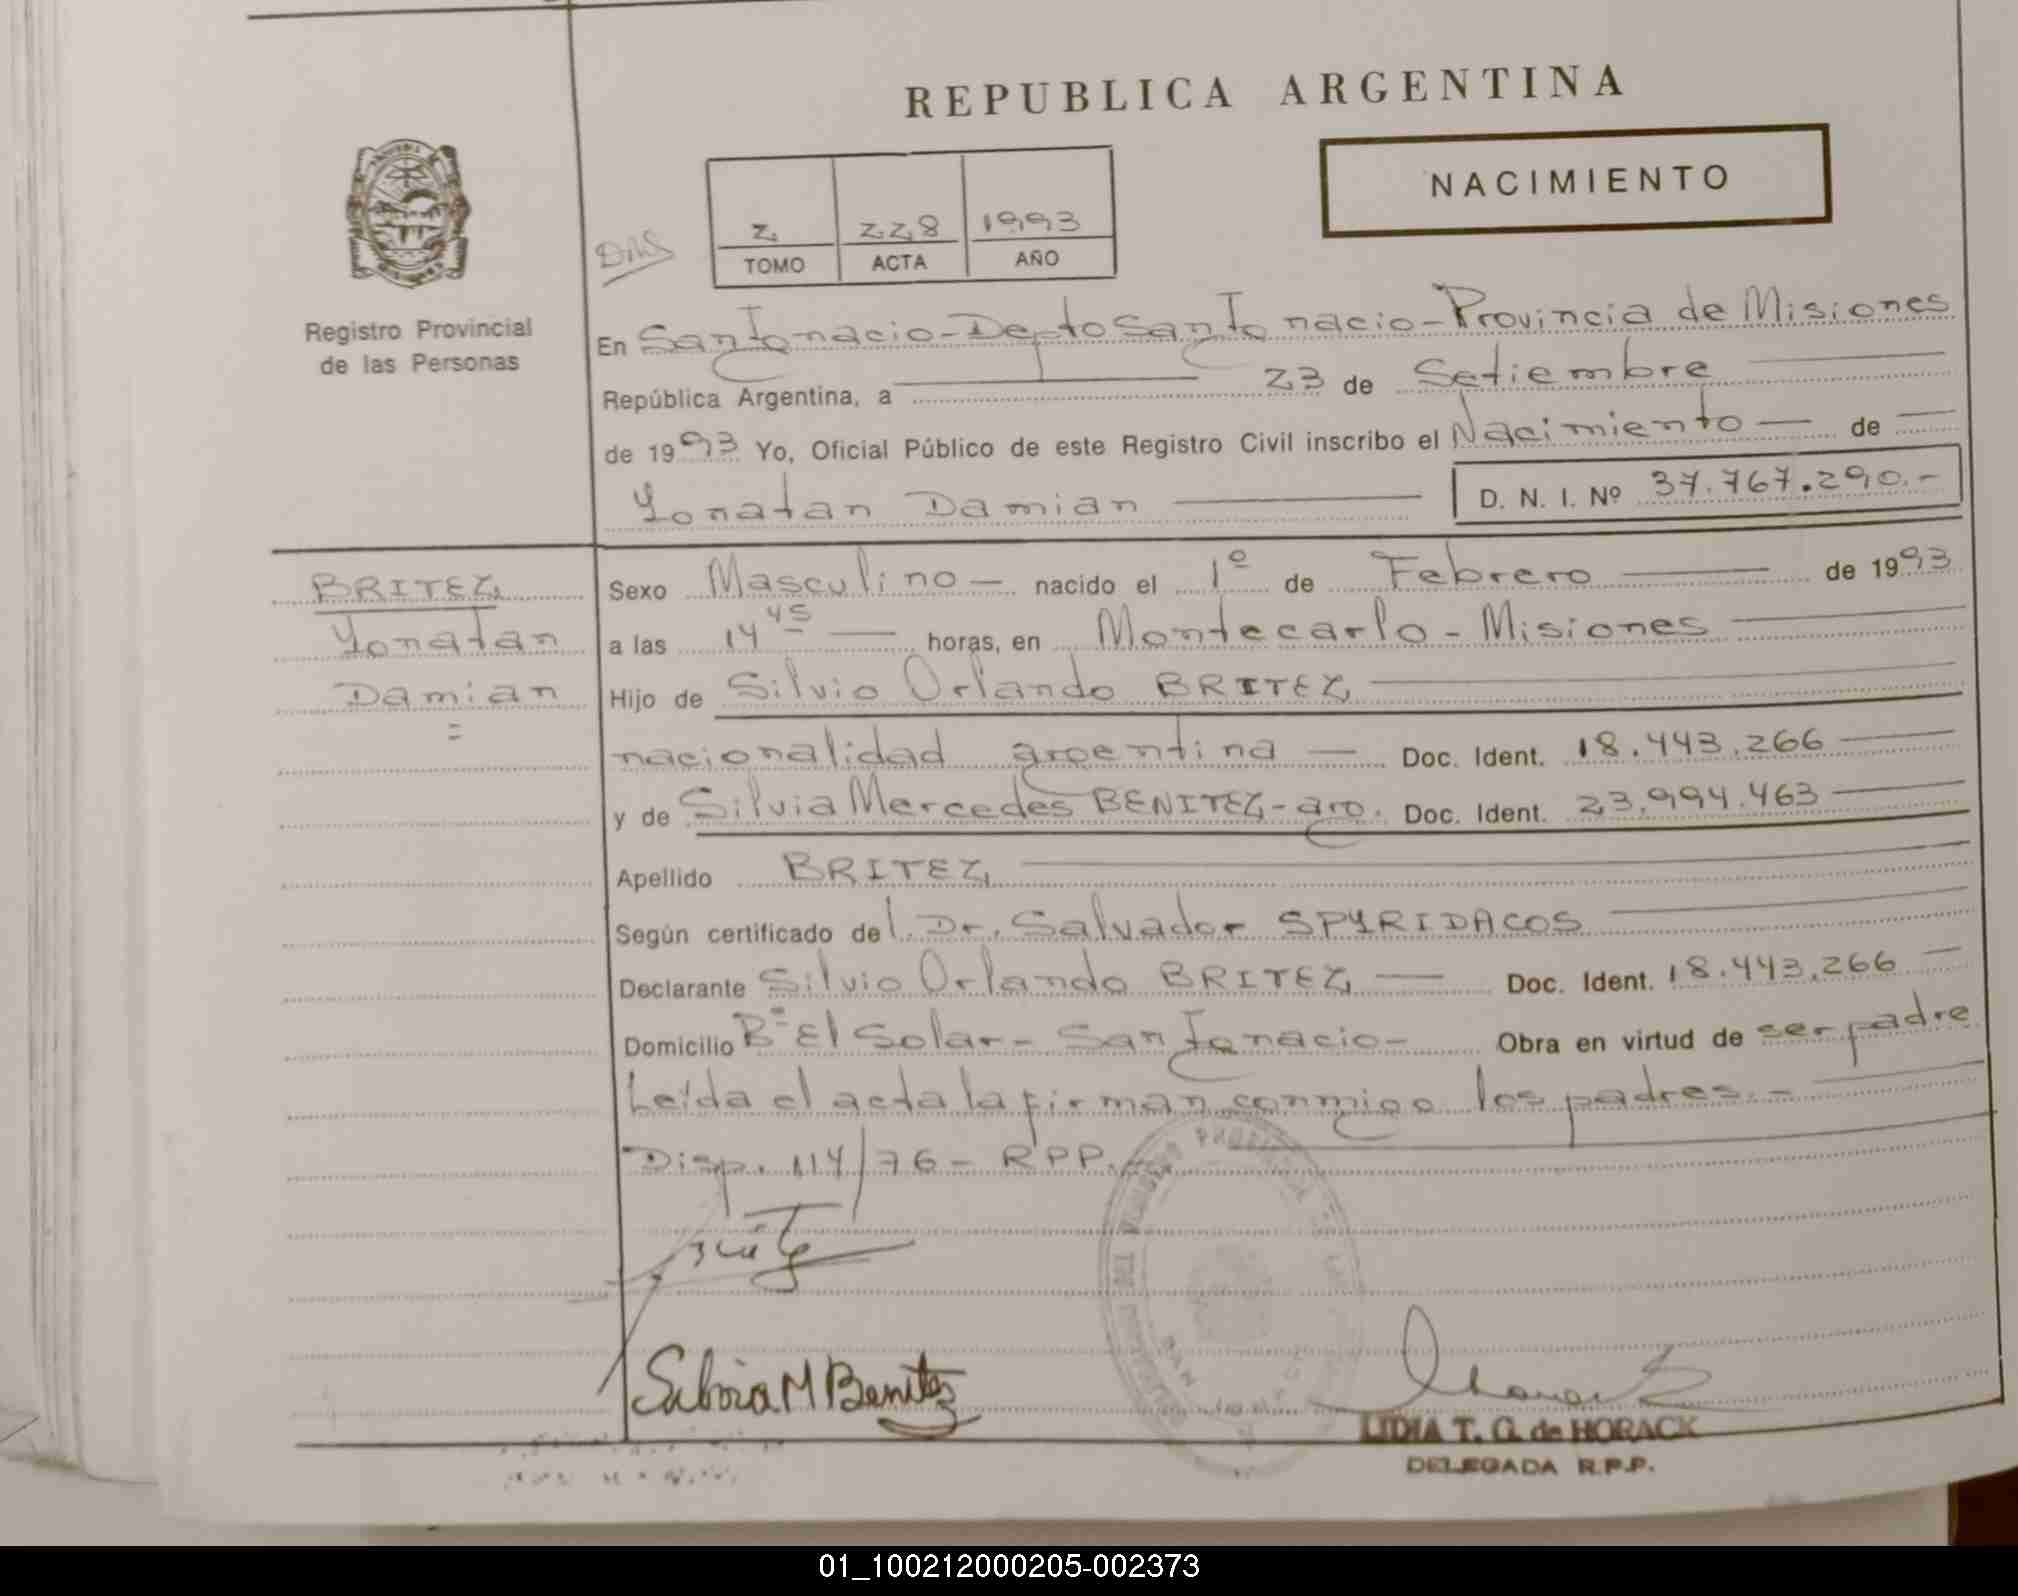 REPUBLICA ARGENTINA
NACIMIENTO
2 228 1993
TOMO ACTA AÑO
Registro Provincial
de las Personas
En San Ignacio - Depto San Ignacio - Provincia de Misiones
República Argentina, a 23 de Setiembre
de 1993 Yo, Oficial Público de este Registro Civil inscribo el Nacimiento — de —
Yonatan Damian — D. N. I. Nº 37.767.290.-
BRITEZ
Yonatan
Damian
=
Sexo Masculino — nacido el 1º de Febrero — de 1993
a las 14 45 — horas, en Montecarlo - Misiones
Hijo de Silvio Orlando BRITEZ
nacionalidad argentina — Doc. Ident. 18.443.266
y de Silvia Mercedes BENITEZ - arg. Doc. Ident. 23.994.463
Apellido BRITEZ
Según certificado del. Dr. Salvador SPYRIDACOS
Declarante Silvio Orlando BRITEZ — Doc. Ident. 18.443.266
Domicilio Bº El Solar - San Ignacio - Obra en virtud de ser padre
Leída el acta la firman conmigo los padres. -
Disp. 114/76 - RPP.
Silvia M Benitez
LIDIA T. G. de HORACK
DELEGADA R.P.P.
01_100212000205-002373